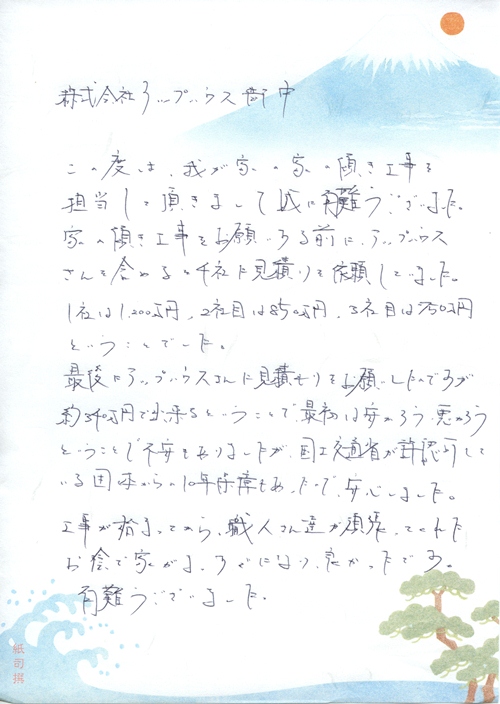 株式会社アップハウス御中
この度は、我が家の家の傾き工事を
担当して頂きまして誠に有難うございました。
家の傾き工事をお願いする前に、アップハウス
さんを含めると4社に見積りを依頼していました。
1社は1,200万円、2社目は850万円、3社目は750万円
ということでした。
最後にアップハウスさんに見積もりをお願いしたのですが
約340万円で出来るということで、最初は安かろう、悪かろう
ということで不安もありましたが、国土交通省が許認可して
いる団体からの10年保障もあったので、安心しました。
工事が始まってから、職人さん達が頑張ってくれた
お陰で家がまっすぐになり、良かったです。
有難うございました。
紙司撰